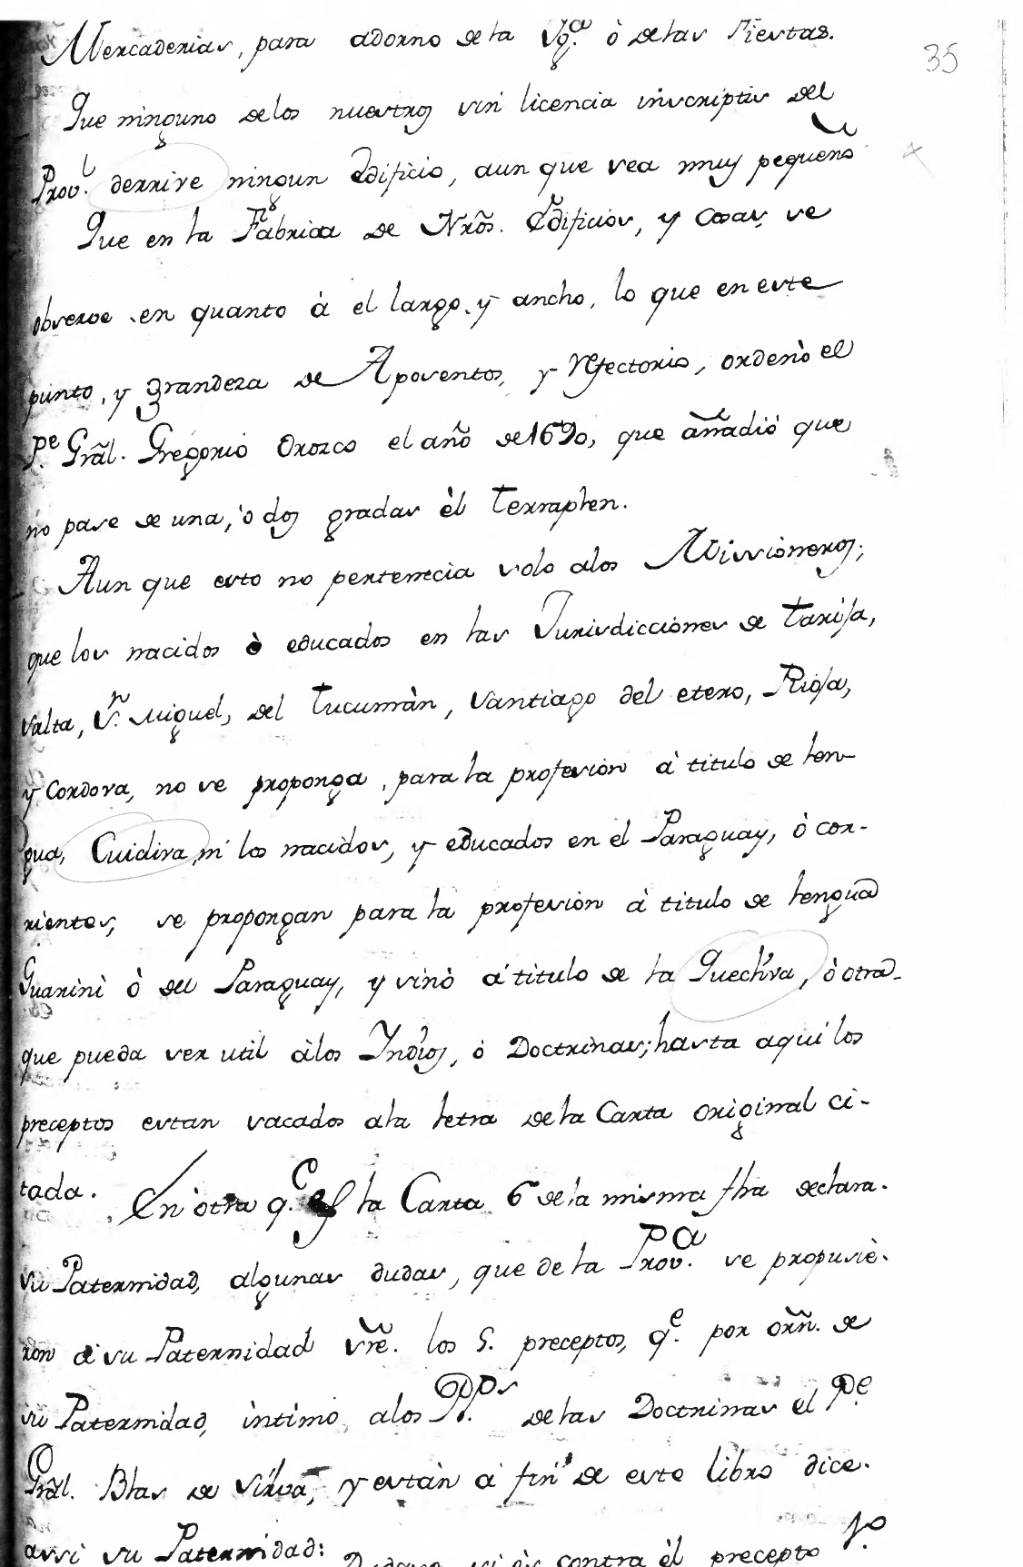 Mercaderias, para adorno de la Yg.ª ò de las Fiestas.
35
Que ninguno de los nuestros sin licencia inscriptis del
Prov.l derrive ningun Edificio, aun que sea muy pequeño
Que en la Fabrica de Nrõs. Edificios, y Casas, se
observe en quanto à el largo, y ancho, lo que en este
punto, y grandeza de Aposentos, y Refectorio, ordenò el
P.e Grãl. Gregorio Orozco el año de 1690, que añadiò que
no pase de una, ò dos gradas èl Terraplen.
Aun que esto no pertenecia solo a los Missioneros;
que los nacidos ò educados en las Jurisdicciones de Tarija,
Salta, S.n Miguel, del Tucumàn, Santiago del etero, Rioja,
y Cordova, no se proponga, para la profesion à titulo de len-
gua, Cuidiva, ni los nacidos, y educados en el Paraguay, ò cor-
rientes, se propongan para la profesion à titulo de lengua
Guarini ò del Paraguay, y sinò à titulo de la Quechva, ò otra
que pueda ser util àlos Yndios, ò Doctrinas; hasta aqui los
preceptos estan sacados ala letra de la Carta original ci-
tada. En otra q.e es la Carta 6 de la misma fha declara
su Paternidad, algunas dudas, que de la Prov.ª se propusie-
ron à su Paternidad sr̃e. los 5. preceptos, q.e por orñ. de
su Paternidad, intimo alos PP.s de las Doctrinas èl P.e
Grãl. Blas de Silva, y estàn à fin de este libro dice
assi su Paternidad: contra èl precepto 1.º